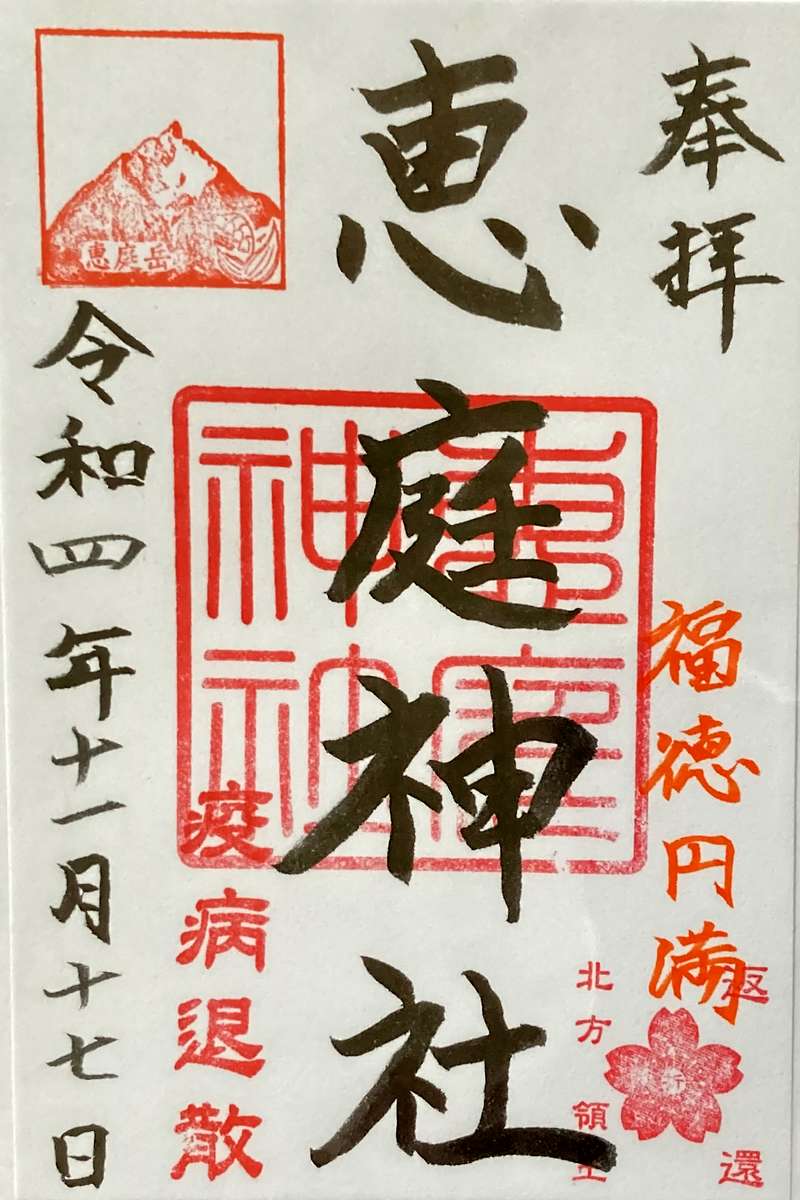 奉拝
福徳円満
北方領土
返還
祈
恵庭神社
恵庭神社
疫病退散
恵庭岳
令和四年十一月十七日